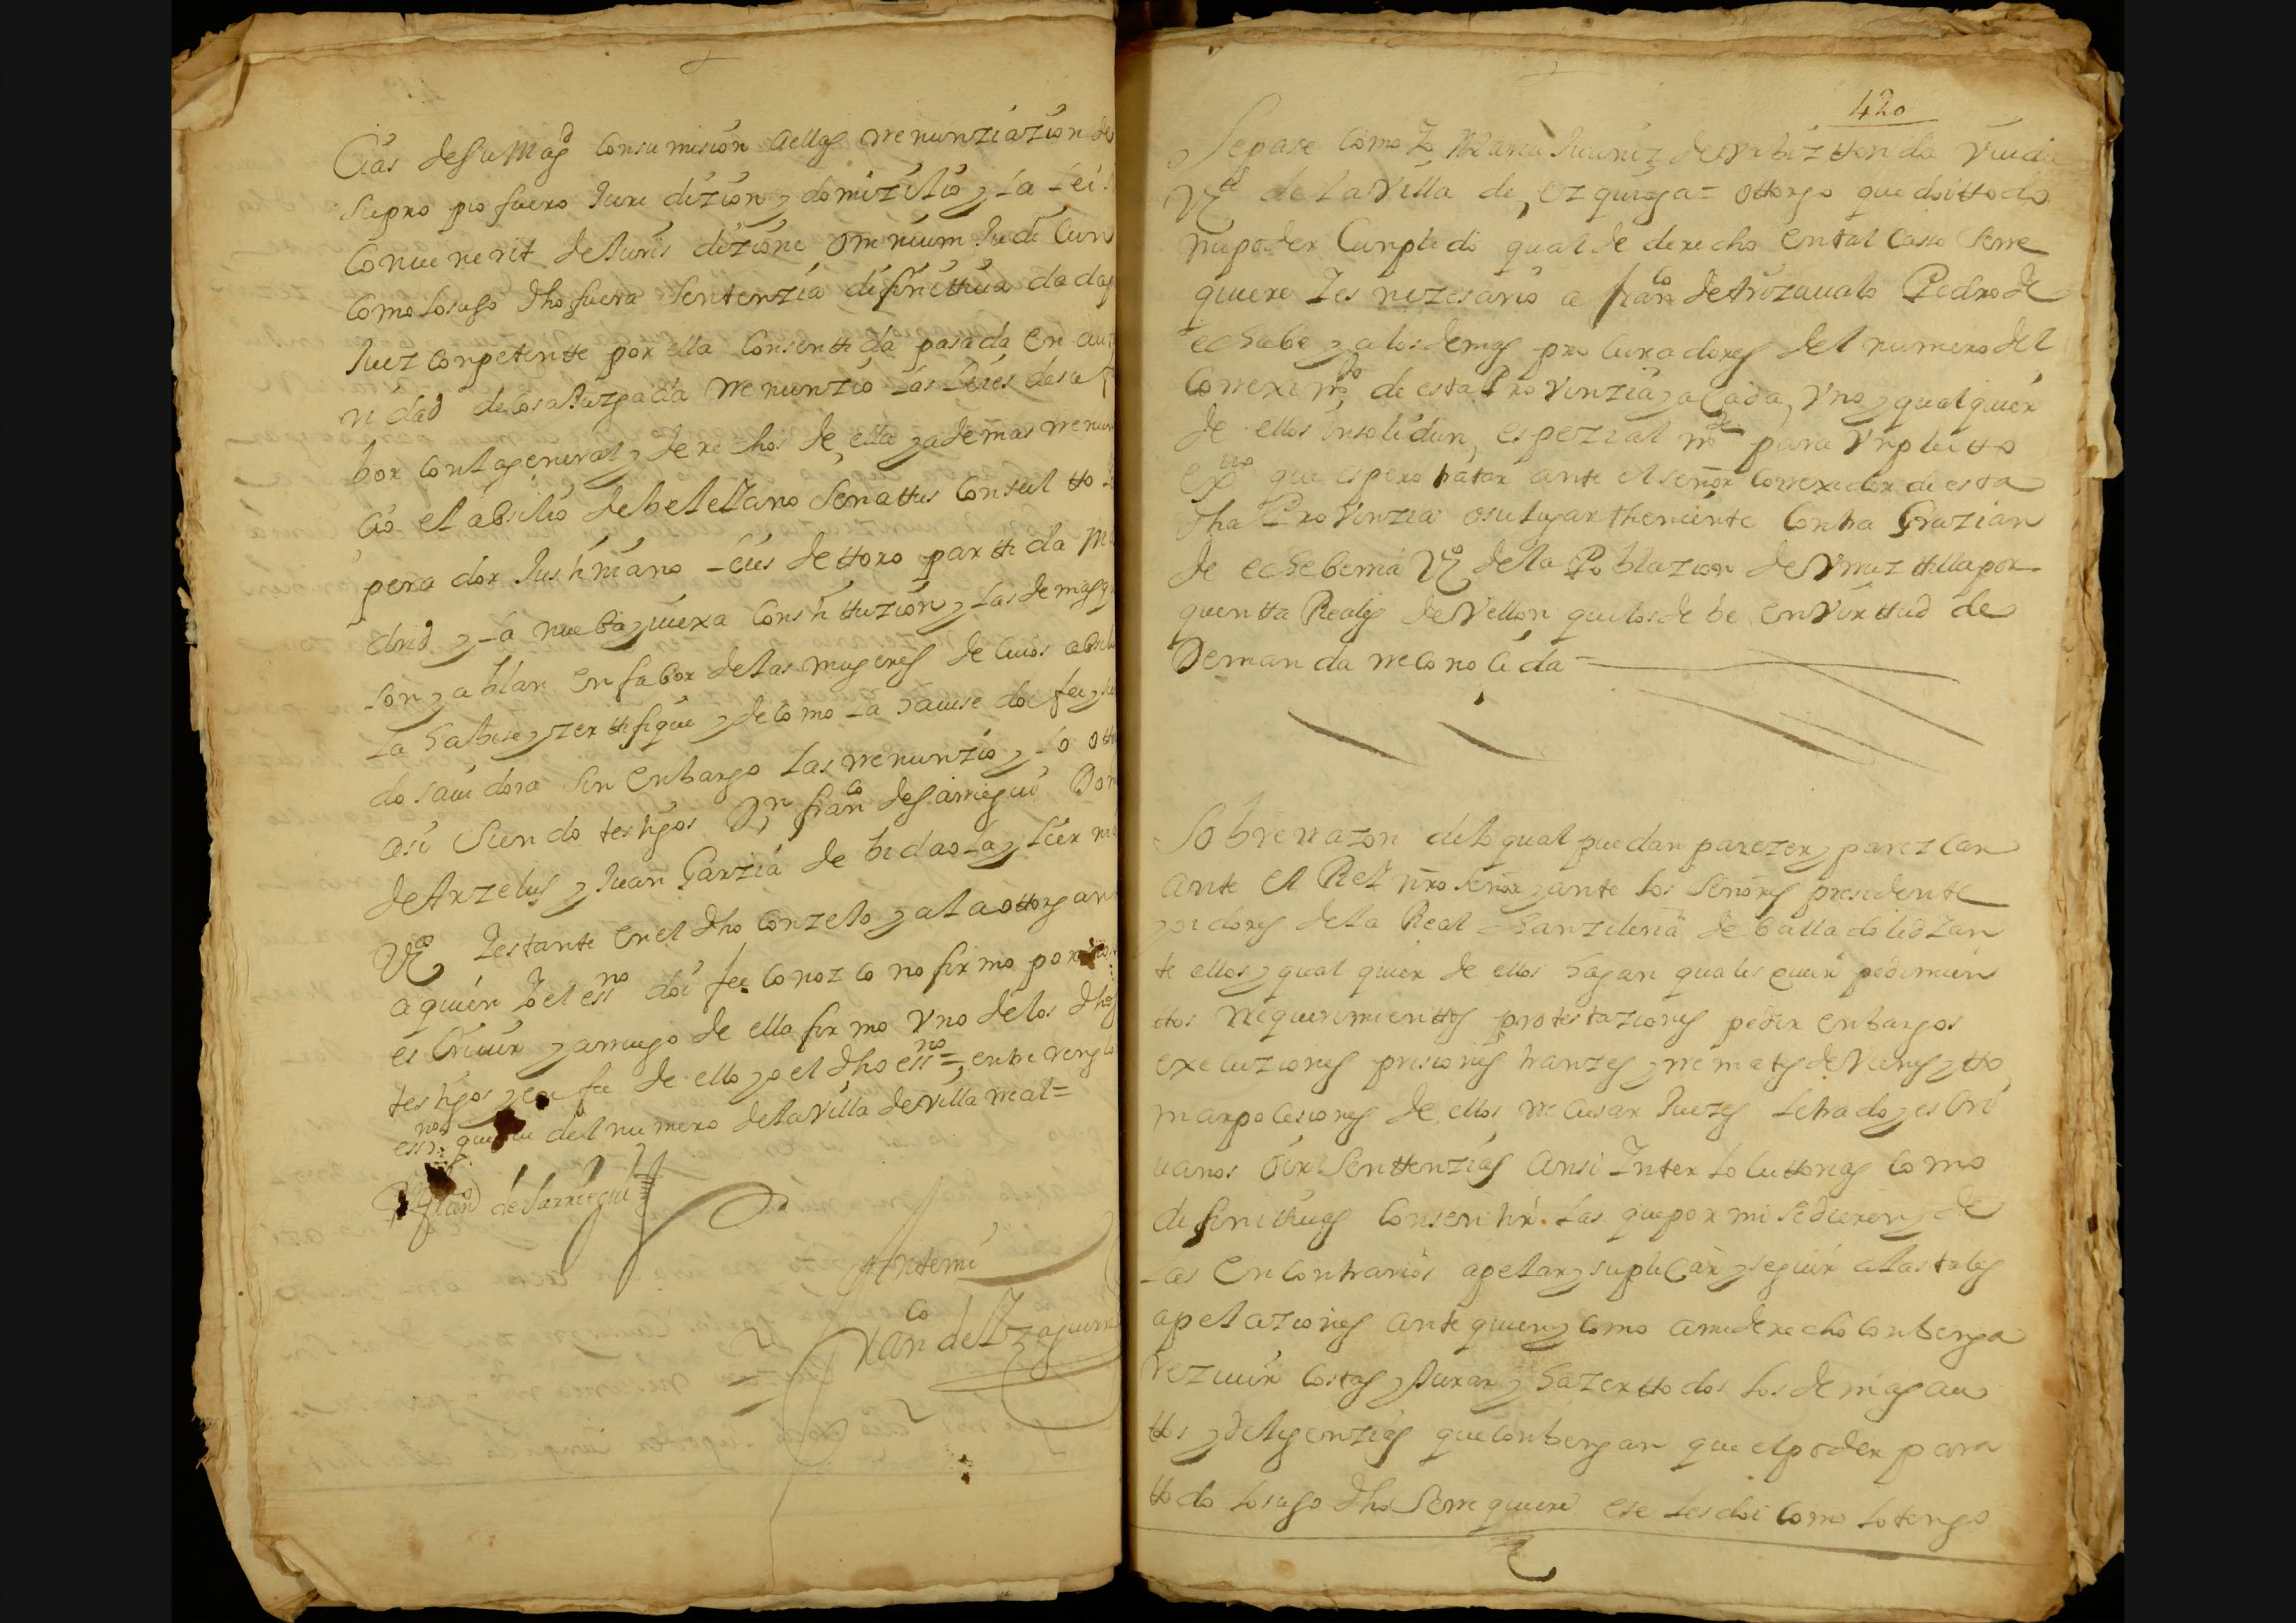 Cias de su Mag.d con sumision a ellas rrenunziazion de
su propio fuero Juredizion y domizilio y la lei s
conuenerit de Juris dizione omnium Judicun
como lo suso dho fuera sentenzia difinittiua dada p
Juez conpetentte por ella consenttida pasada en auto
ridad de cosa Juzgada rrenunzio las leies de su f
bor con la general y derechos de ella y ademas rrenun
cio el absilio de beleLLano Senattus Consultto
perador Justiniano leies de ttoro parttida Ma
drid y la nueba y uiexa constittuzion y las demas q
son y ablan en fabor de las mugeres de cuios absi
la habise y zerttifique y de como la hauise doi fee y
do sauidora sin enbargo las rrenunzio y lo otto
asi siendo testigos D.n fran.co de Sarriegui Dom
de Arzelus y Juan Garzia de bidaola y lier
V.o y estante en el dho conzeLo y a la ottorgan
a quien Yo el ess.no doi fee conozco no firmo por
escriuir y a rruego de ella firmo vno de los dhos
testigos y en fee de ello yo el dho ess.no = entre rengl
ess.no que fue del numero de la villa de villa rreal =
D.n fran.co de Sarriegui
Antemi
fran.co de Yzaguirre
420
Sepase como Yo Maria Juaniz de vrbizttondo viuda
V.a de la villa de ezquioga = ottorgo que doi ttodo
mi poder Cunplido qual de derecho en tal casso se rre
quiere Y es nezesario a fran.co de Arizaualo Pedro de
echabe y a los demas procuradores del numero del
Correxim.to de esta Prouinzia y a Cada vno y qualquier
de ellos insolidun, espezial m.te para vn pleitto
ex.uo que espero tratar ante el señor Correxidor de esta
dha Prouinzia o su lugar theniente Contra Grazian
de echeberria V.o de la Poblazion de Vrruzttilla por
quentta Reales de Vellon que los debe en virttud de
Demanda rreconocida
Sobre rrazon de lo qual puedan parezer y parezcan
ante el Rei nro señor y ante los señores presidente
y oidores de la Real Chanzileria de balladolid y an
te ellos y qualquier de ellos hagan qualesquier pedimien
ttos rrequerimienttos protestaziones pedir enbargos
execuziones prisiones tranzes y rremates de vienes y tto
mar posesiones de ellos rrecusar Juezes letrados y escri
uanos oir Senttenzias ansi Interlocuttorias como
difinittiuas consentir las que por mi se dieren y de
las en contrario apelar y suplicar y seguir a las tales
apelaziones ante quien y como a mi derecho conbenga
rezeuir costas y Jurar y hazer ttodos los demas au
ttos y dilijenzias que conbengan que el poder para
ttodo lo suso dho se rrequiere ese les doi como lo tengo